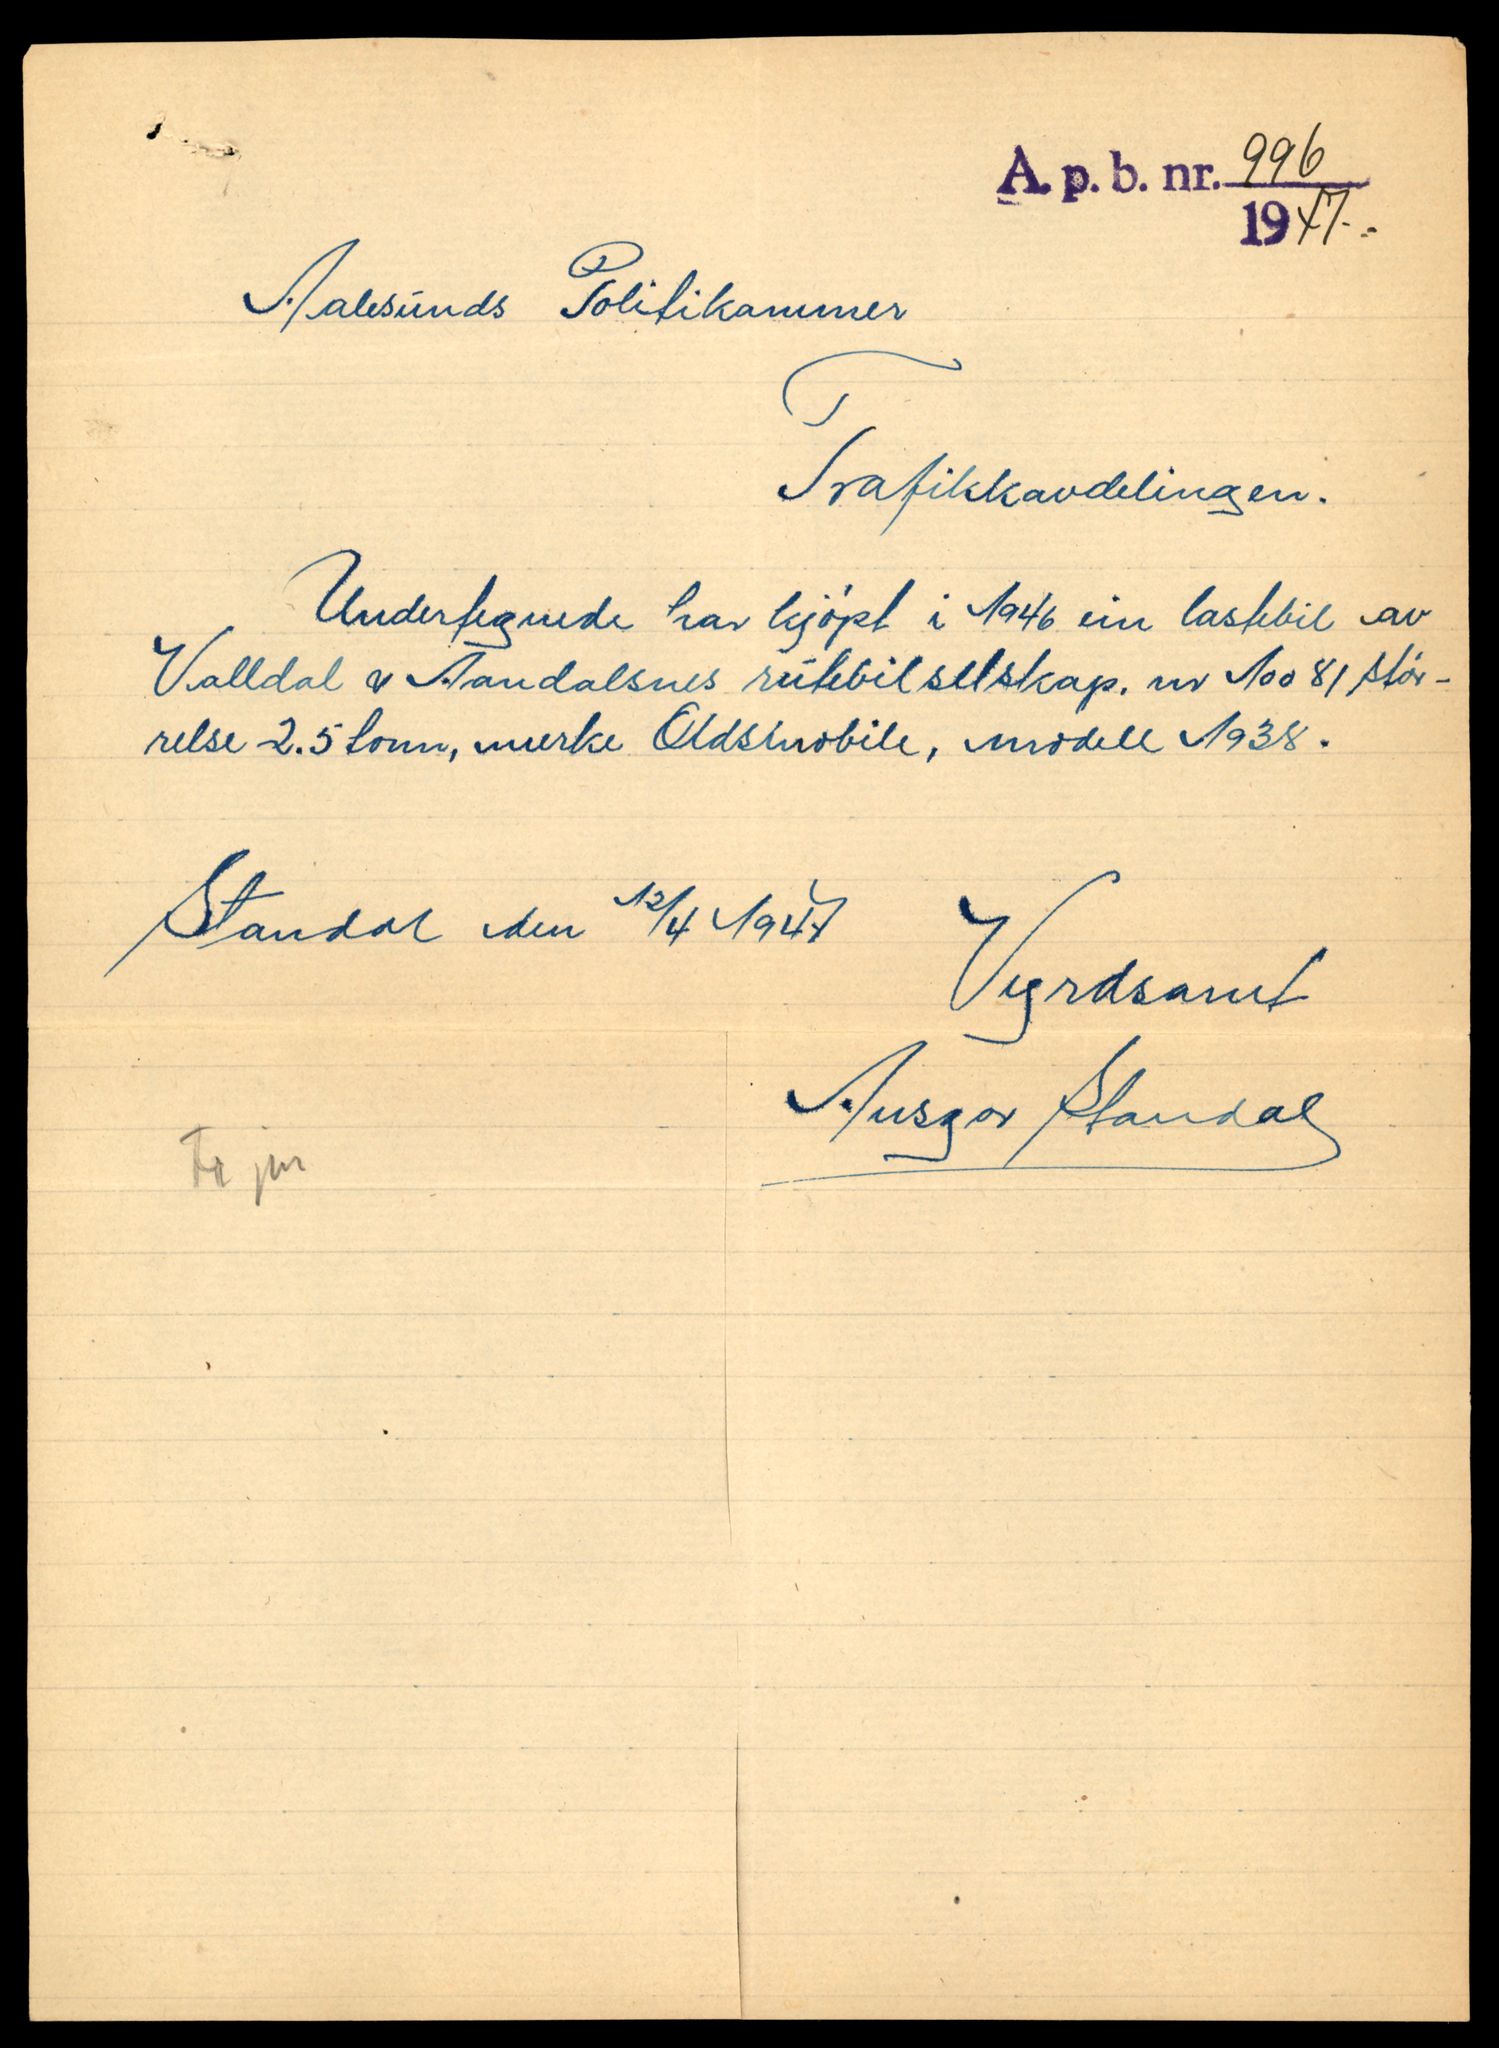 A. p. b. nr. 996
1947.
Aalesunds Politikammer
Trafikkavdelingen.
Undertegnede har kjöpt i 1946 ein lastebil av
Valldal v Aandalsnes rutebilselskap. nr 10081 stör-
relse 2.5 tonn, merke Oldsmobile, modell 1938.
Standal den 12/4 1947
Vyrdsamt
Ansgar Standal